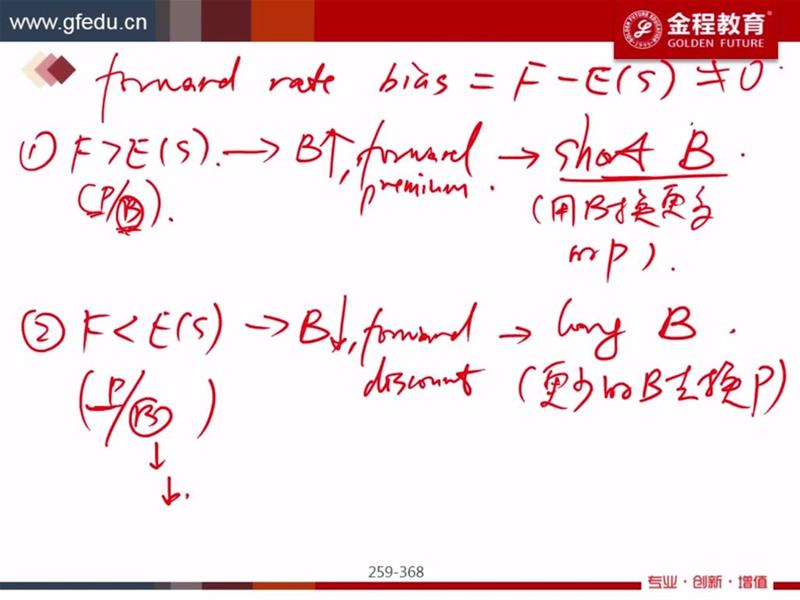 www.gfedu.cn
金程教育
GOLDEN FUTURE
forward rate bias = F - E(S) ≠ 0.
① F > E(S). → B↑, forward premium. → short B.
(P/B).
(用B换更多
的P).
② F < E(S) → B↓, forward discount → long B.
(P/B)
(更少的B去换P)
↓
b.
259-368
专业·创新·增值